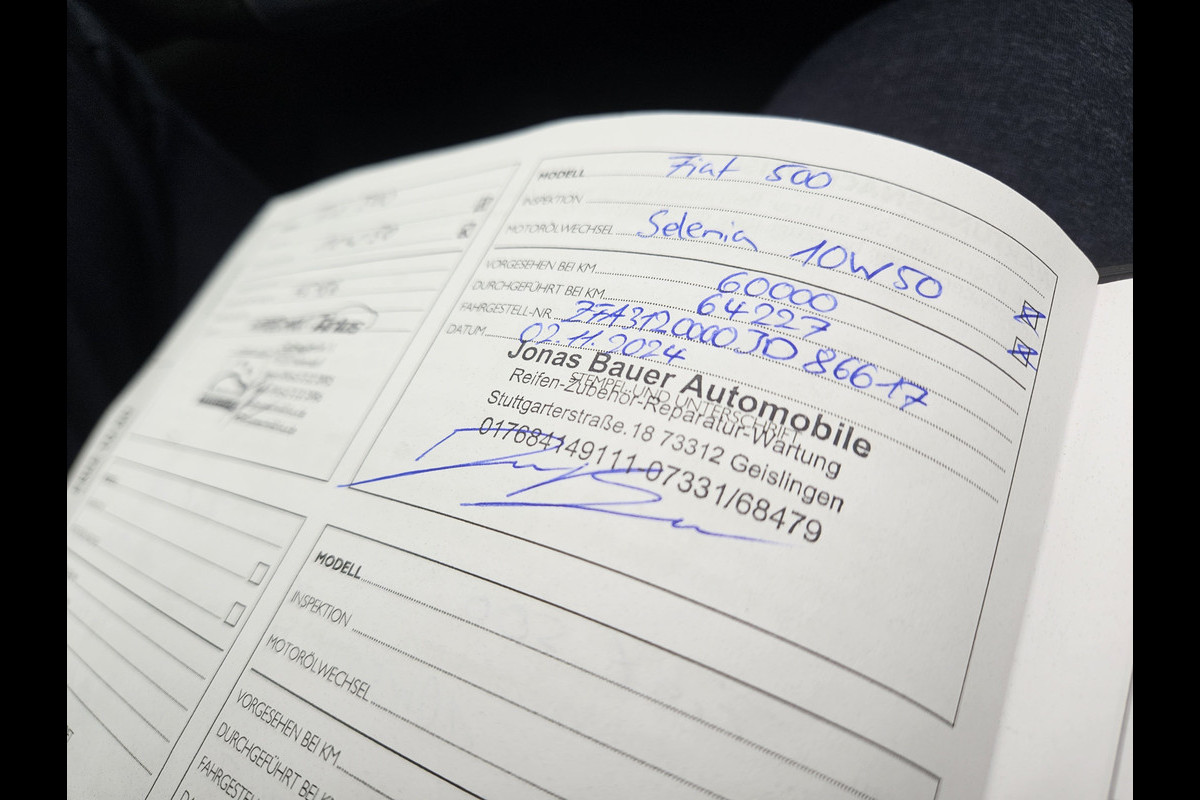 MODELL Fiat 500
INSPEKTION
MOTORÖLWECHSEL Selenia 10W50
VORGESEHEN BEI KM 60000
DURCHGEFÜHRT BEI KM 64227
FAHRGESTELL-NR. ZFA3120000JD86617
DATUM 02.11.2024
STEMPEL UND UNTERSCHRIFT
Jonas Bauer Automobile
Reifen-Zubehör-Reparatur-Wartung
Stuttgarterstraße.18 73312 Geislingen
017684149111-07331/68479
MODELL
INSPEKTION
MOTORÖLWECHSEL
VORGESEHEN BEI KM
DURCHGEFÜHRT BEI KM